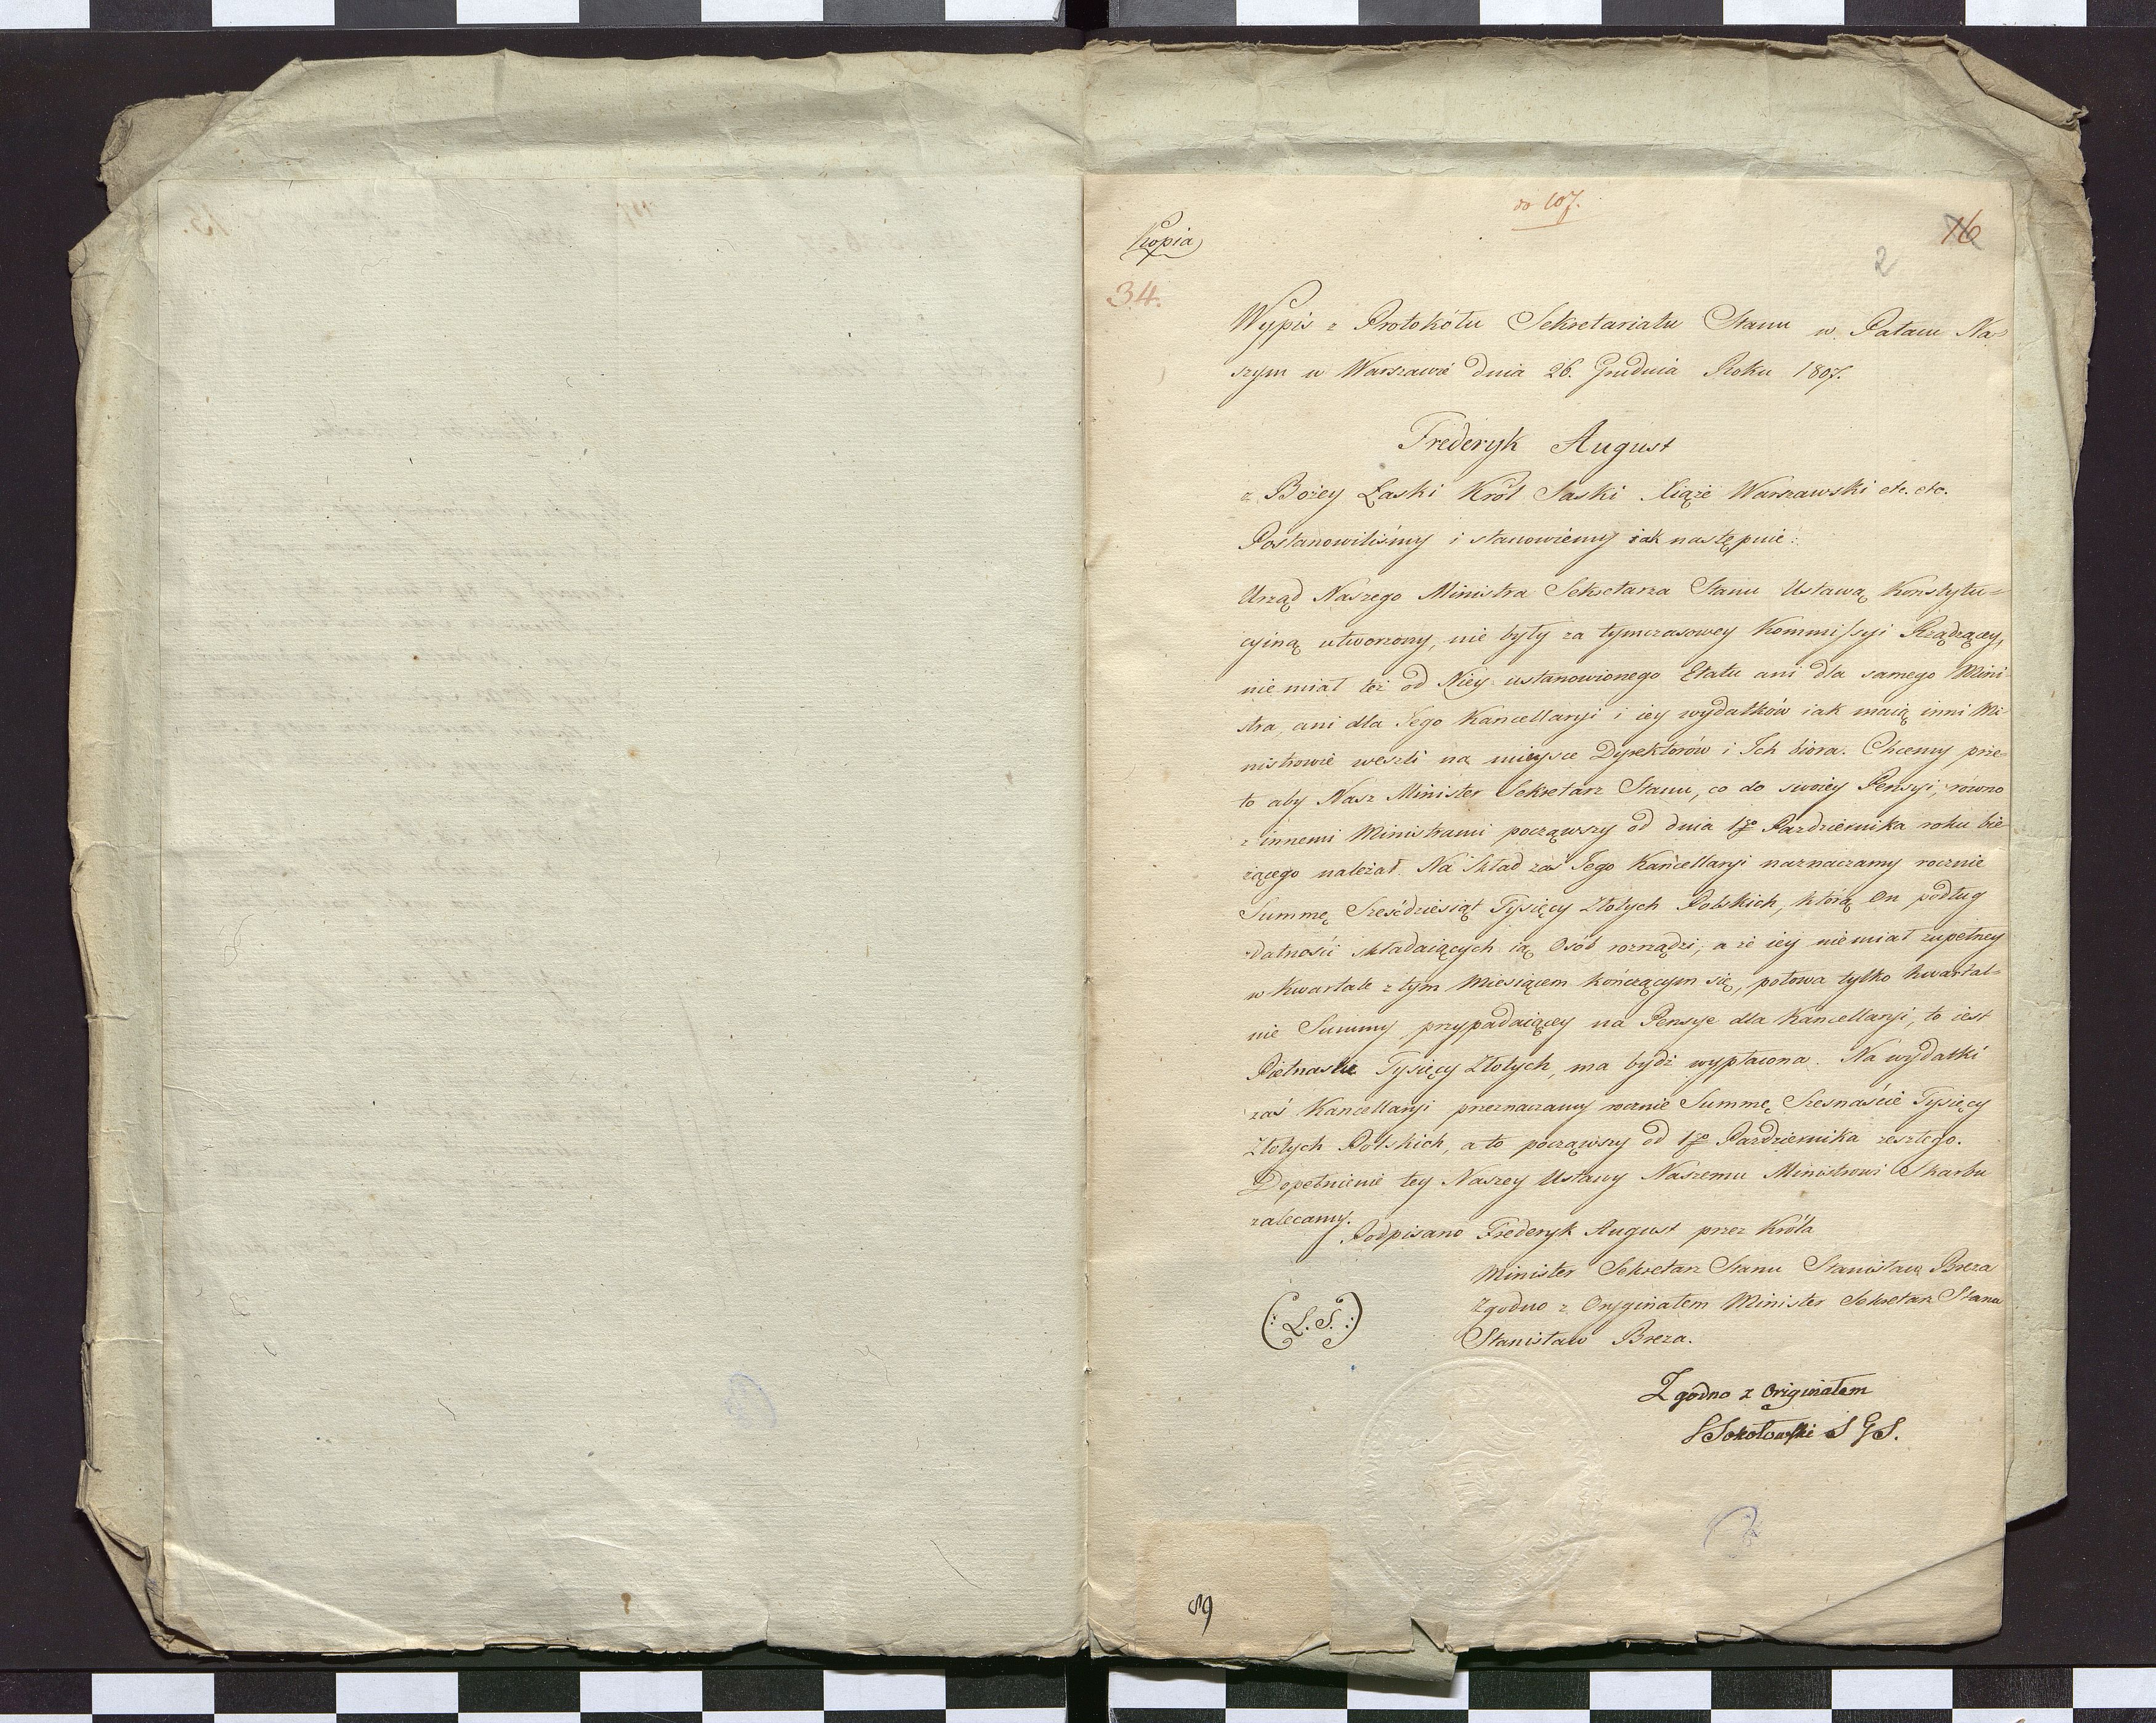 do 107.
16
2
Kopia
34.
Wypis z Protokółu Sekretariatu Stanu w Pałacu Na=
szym w Warszawie dnia 26. Grudnia Roku 1807.
Frederyk August
z Bożey Łaski Król Saski Xiąże Warszawski etc. etc.
Postanowiliśmy i stanowiemy iak następuie:
Urząd Naszego Ministra Sekretarza Stanu Ustawą Konstytu=
cyiną utworzony, nie były za tymczasowey Kommissyi Rządzącey,
nie miał też od Niey ustanowionego Etatu ani dla samego Mini=
stra, ani dla Jego Kancellaryi i iey wydatków iak maią inni Mi=
nistrowie weszli na mieysce Dyrektorów i Ich biora. Chcemy prze=
to aby Nasz Minister Sekretarz Stanu, co do swoiey Pensyi, równo
z innemi Ministrami począwszy od dnia 1go Pazdziernika roku bie=
żącego należał. Na Skład zaś Jego Kancellaryi naznaczamy rocznie
Summę Sześćdziesiąt Tysięcy Złotych Polskich, którą On podług
zdatności składaiących ią Osób rozrządzi, a że iey nie miał zupełney
w kwartale z tym Miesiącem kończącym się, połowa tylko kwartal=
nie Summy przypadaiącey na Pensye dla Kancellaryi, to iest
Piętnaście Tysięcy Złotych, ma bydź wypłacona. Na wydatki
zaś Kancellaryi przeznaczamy rocznie Summę Szesnaście Tysięcy
Złotych Polskich, a to począwszy od 1go Pazdziernika zeszłego.
Dopełnienie tey Naszey Ustawy Naszemu Ministrowi Skarbu
zalecamy.
Podpisano Frederyk August przez Króla
Minister Sekretarz Stanu Stanisław Breza
(: L. S. :)
Zgodno z Oryginałem Minister Sekretarz Stanu
Stanisław Breza.
Zgodno z Originałem
Sokołowski S G S.
89